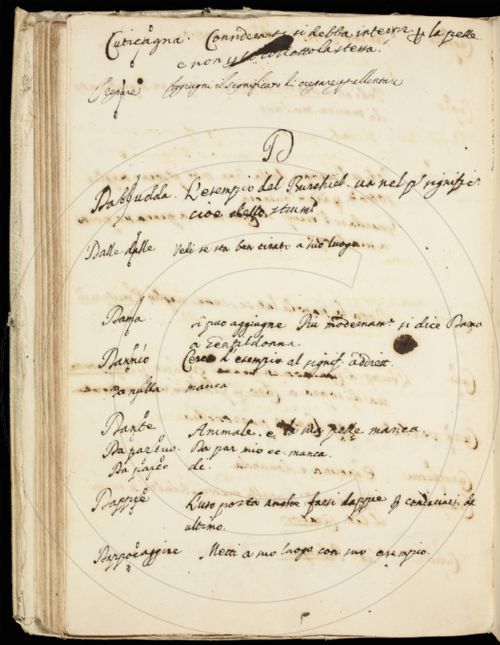 Cuticagna. Considerare si debba intera p la pelle
e non la stessa.
Crepare Aggiugni il significato di crepare
D
Dabbudda. L'esempio del Burchiel. va nel p.º signific:º
cioè dello strum.º
Dalle dalle Vedi se sta ben tirato a suo luogo.
Dama si può aggiugne Più modernam.e si dice Dama
a Gentildonna.
Dannio Cerca l'esempio al signif.
Da nulla manca
Dante Animale. e pelle manca.
Da par suo. Da par mio ec manca.
Da de
Dappiè L'uso porta anche farsi dappiè
ultimo.
Dappocaggine Metti a suo luogo con suo esempio.